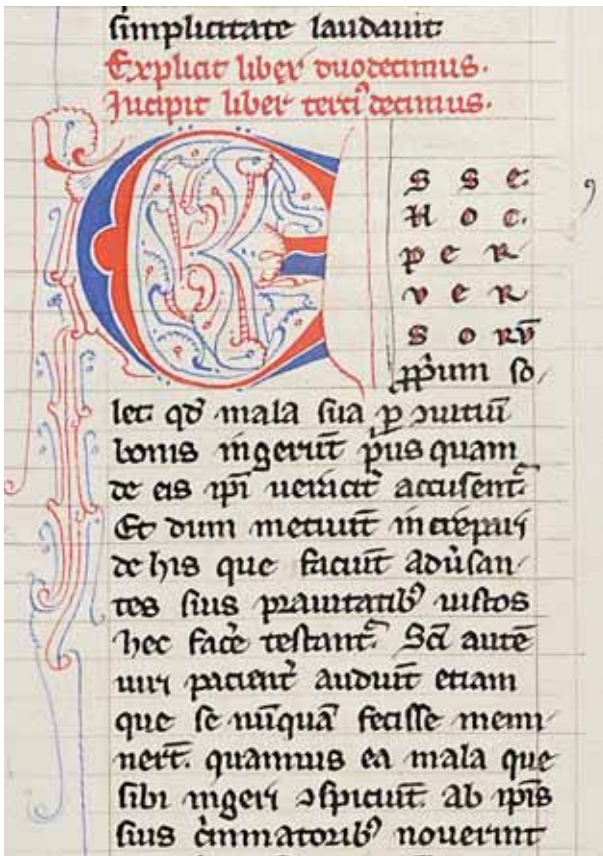 simplicitate laudauit
Explicit liber duodecimus.
Incipit liber terti᾽decimus.
E S S E
H O C
P E R
V E R
S O RV̄
ꝓp̄um so/
let qd᾽ mala sua ꝑ ↄuitiū
bonis ingerūt p̄us quam
de eis ip̄i ueracit᾽ accusent᾽.
Et dum metuūt increpari
de his que faciūt adu᾽san/
tes suis prauitatib᾽ iustos
hec fac᾽e testant᾽. Sc̄i autē
uiri pacient᾽ audiūt etiam
que se nūquā fecisse memi
nerīt. quamuis ea mala que
sibi ingeri ↄspiciūt. ab ip̄is
suis c᾽minatorib᾽ nouerint